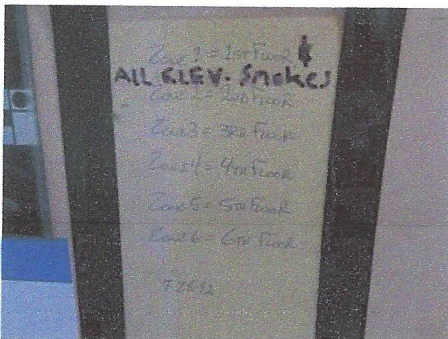 Zone 1 = 1st Floor &
ALL ELEV. SMOKES
Zone 2 = 2nd Floor
Zone 3 = 3rd Floor
Zone 4 = 4th Floor
Zone 5 = 5th Floor
Zone 6 = 6th Floor